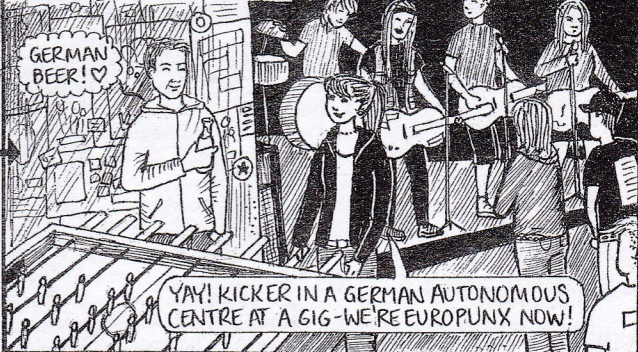 GERMAN
BEER! ♡
YAY! KICKER IN A GERMAN AUTONOMOUS
CENTRE AT A GIG - WE'RE EUROPUNX NOW!